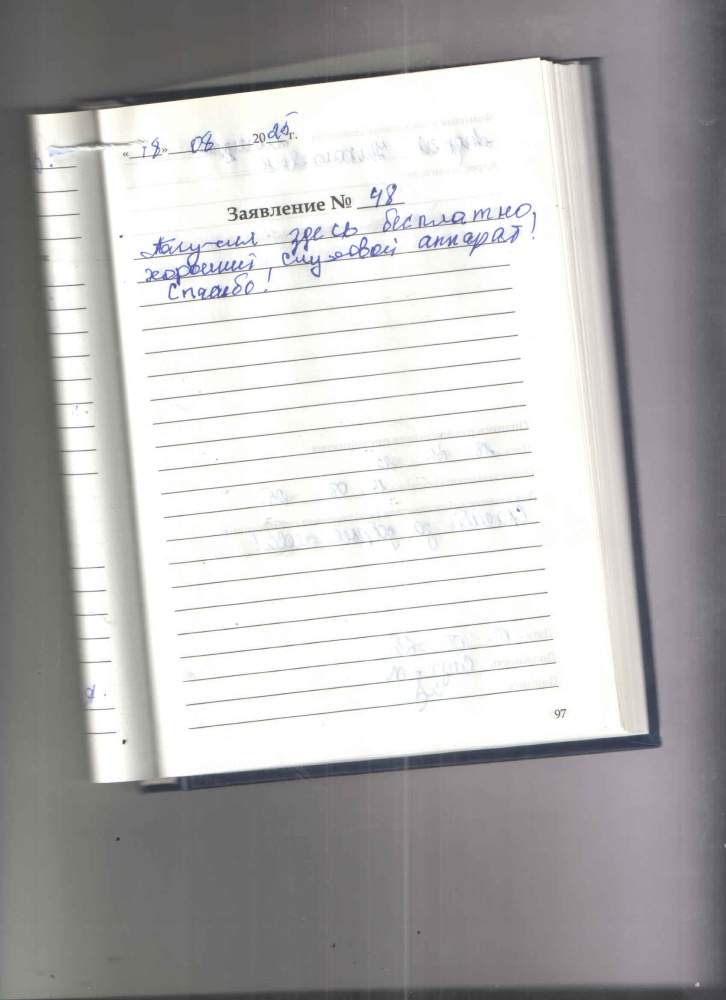 «18» 08 2025 г.
Заявление № 48
Получил здесь бесплатно,
хороший слуховой аппарат!
Спасибо!
97